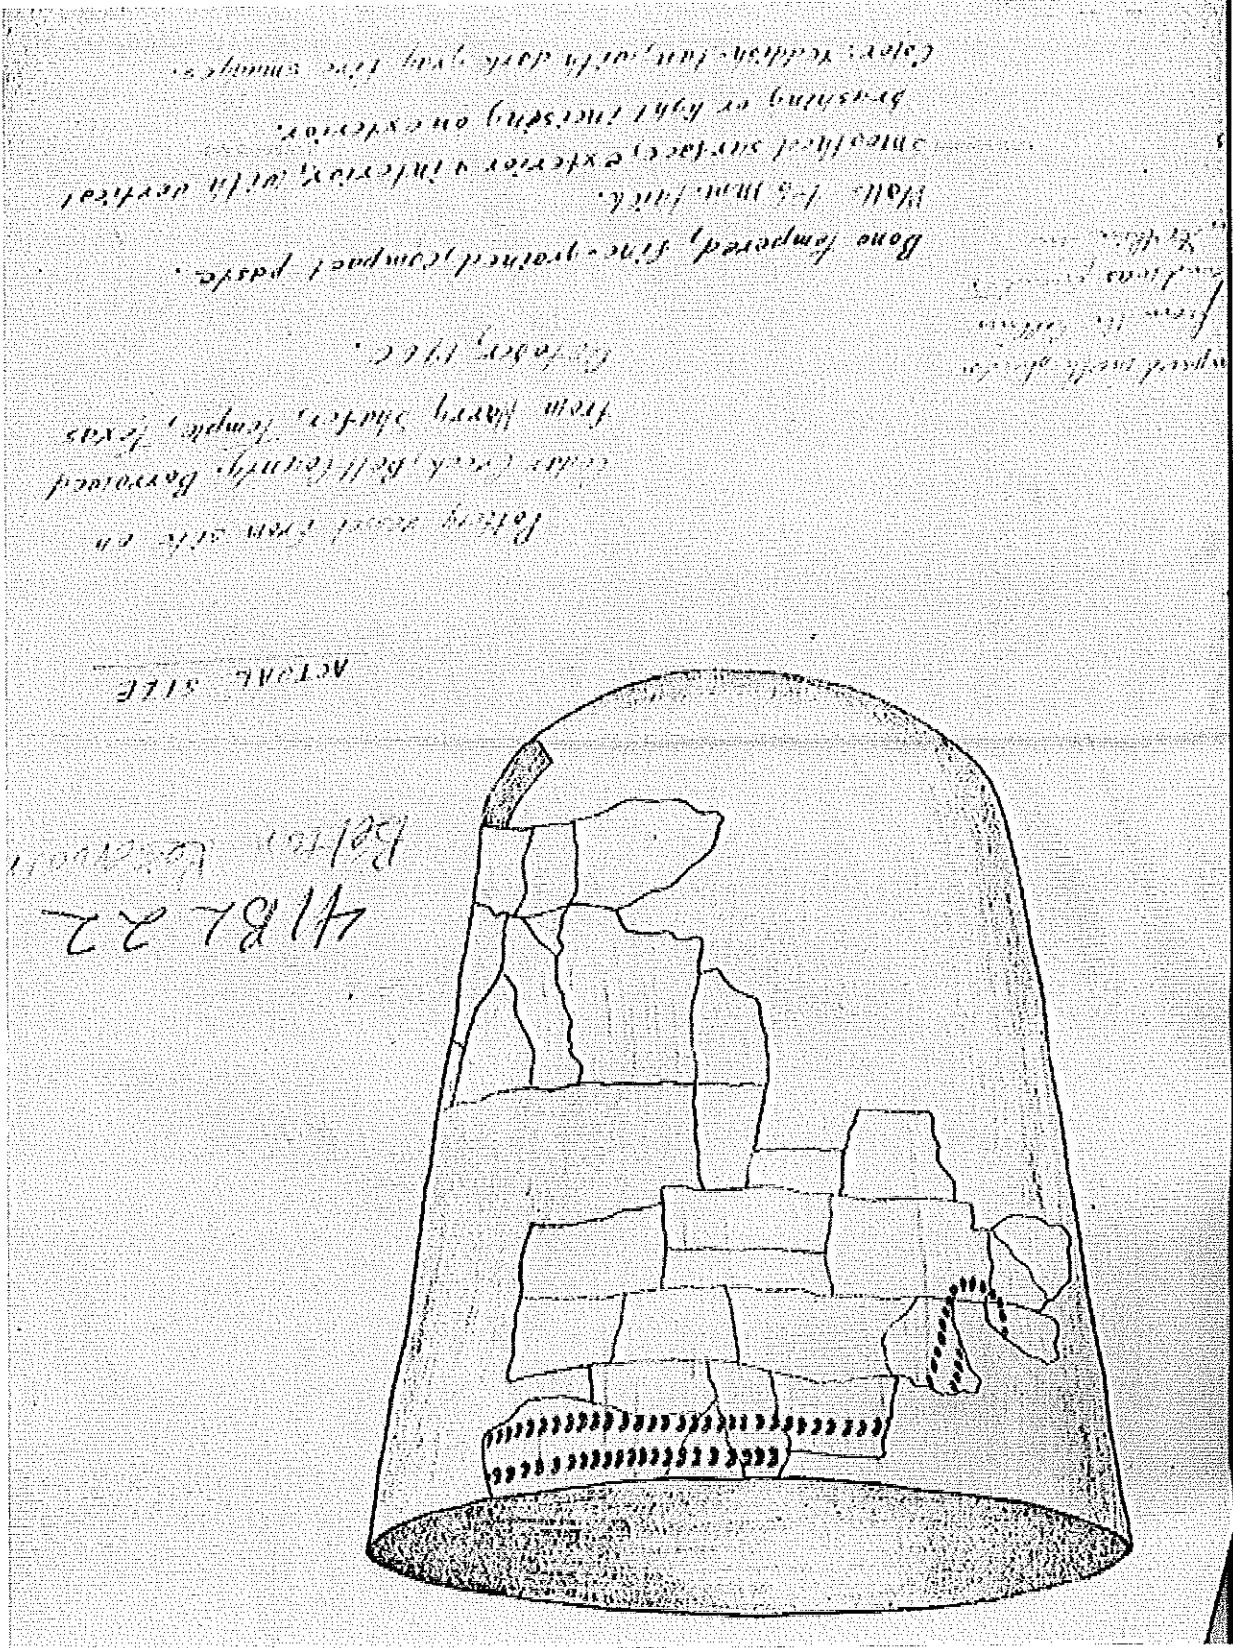 41BL22
Belton Reservoir
ACTUAL SIZE
Pottery vessel from site on
Cedar Creek, Bell County. Borrowed
from Harry Shafer, Temple, Texas
October, 1960.
Bone tempered, fine-grained, compact paste.
Walls mm. thick.
Smoothed surface, exterior & interior, with vertical
brushing or light incising on exterior.
Color: reddish-tan, with dark gray fire smudges.
from the